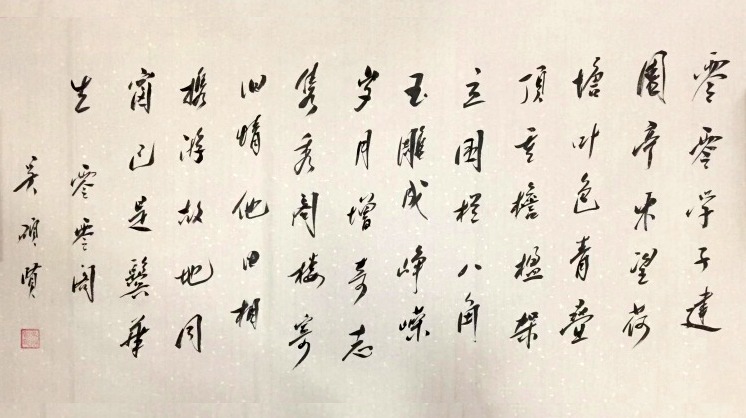 零零学子建
園亭望荷
塘叶色青叠
顶重檐楹架
立围栏八角
玉雕成峥嵘
岁月增奇志
隽秀阁楼寄
旧情他日相
携游故地同
窗已是鬓华
生 零零阁
吴硕贤